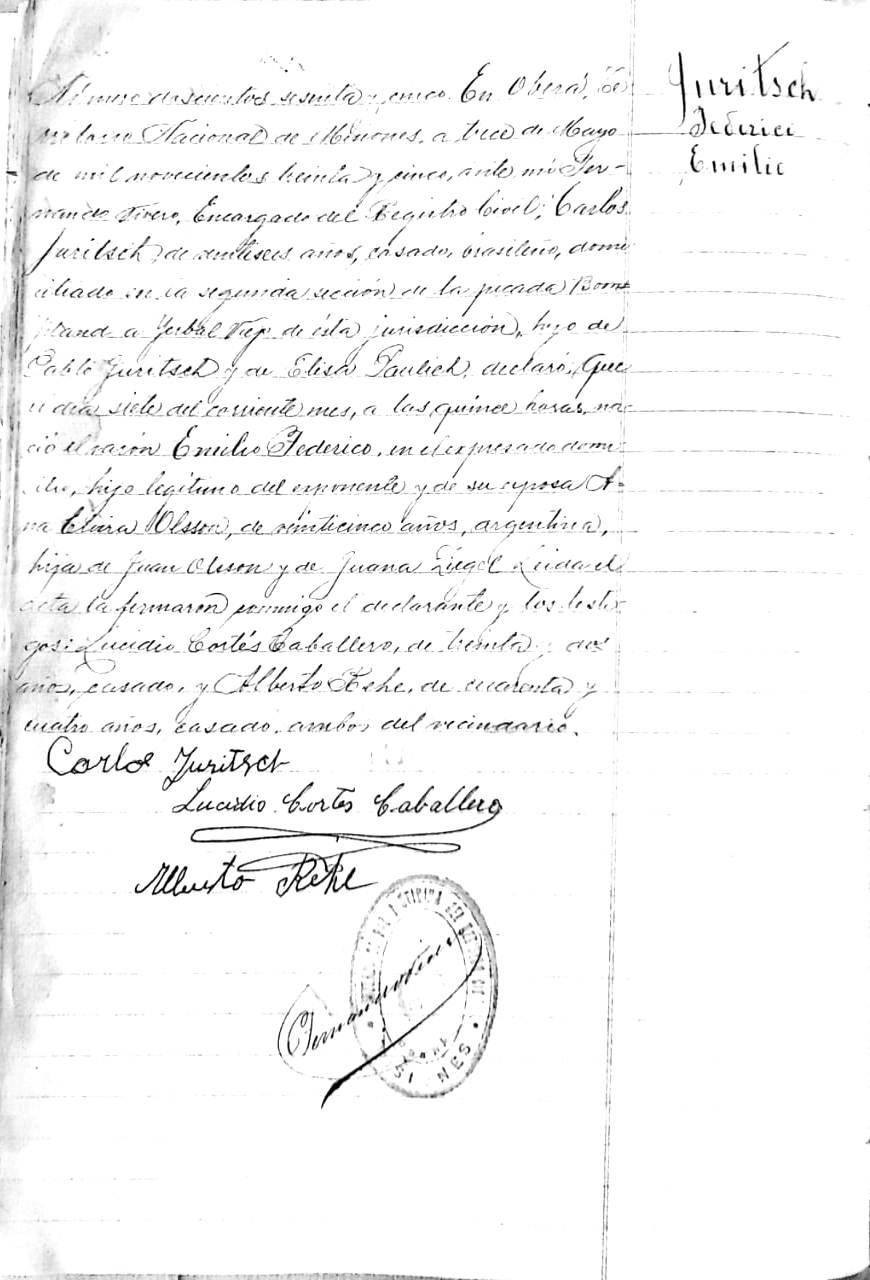 Número doscientos sesenta y cinco. En Oberá, Te-
rritorio Nacional de Misiones, a trece de Mayo
de mil novecientos treinta y cinco, ante mí Fer-
nando Rivero, Encargado del Registro Civil; Carlos
Juritsch, de veintiseis años, casado, brasileño, domi
ciliado en la segunda sección de la picada Bom-
pland a Yerbal Viejo de ésta jurisdicción, hijo de
Pablo Juritsch y de Elisa Paulich, declaró, Que
el día siete del corriente mes, a las quince horas, na-
ció el varón Emilio Federico, en el expresado domi-
cilio, hijo legítimo del exponente y de su esposa A-
na Elvira Olsson, de veinticinco años, argentina,
hija de Juan Olsson y de Juana Ziegel. Leída el
acta la firmaron conmigo el declarante y los testi-
gos: Lucidio Cortés Caballero, de treinta y dos
años, casado, y Alberto Rehe, de cuarenta y
cuatro años, casado, ambos del vecindario.
Carlos Juritsch
Lucidio Cortes Caballero
Alberto Rehe
Juritsch
Federico
Emilio